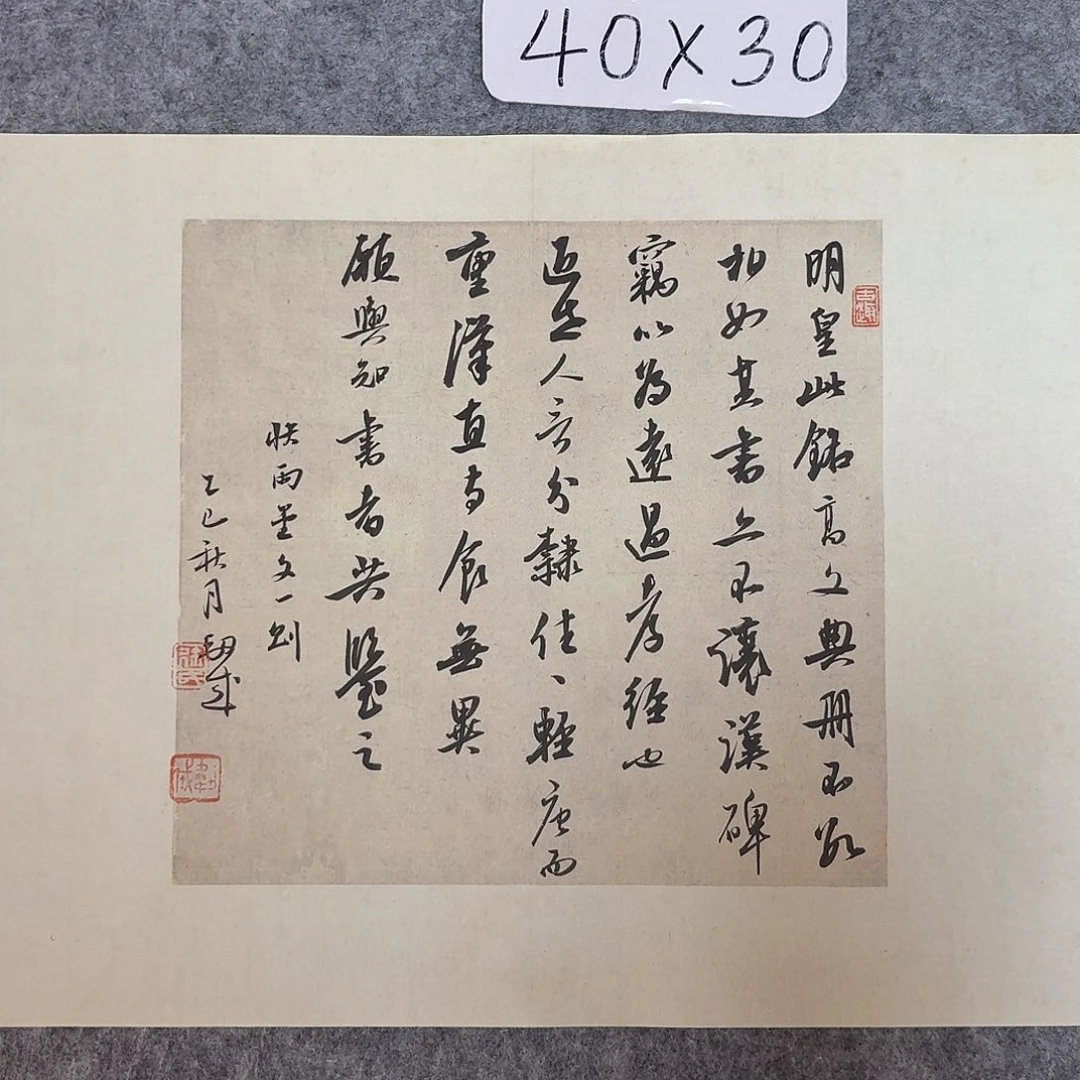 40X30
明皇此銘高文典冊不
相如其書亦不讓漢碑
竊以為遠過孝經也
近世人言分隸往、輕唐而
重漢直耳食無異
願與知書者共鑒之
快雨堂文一則
乙巳秋月